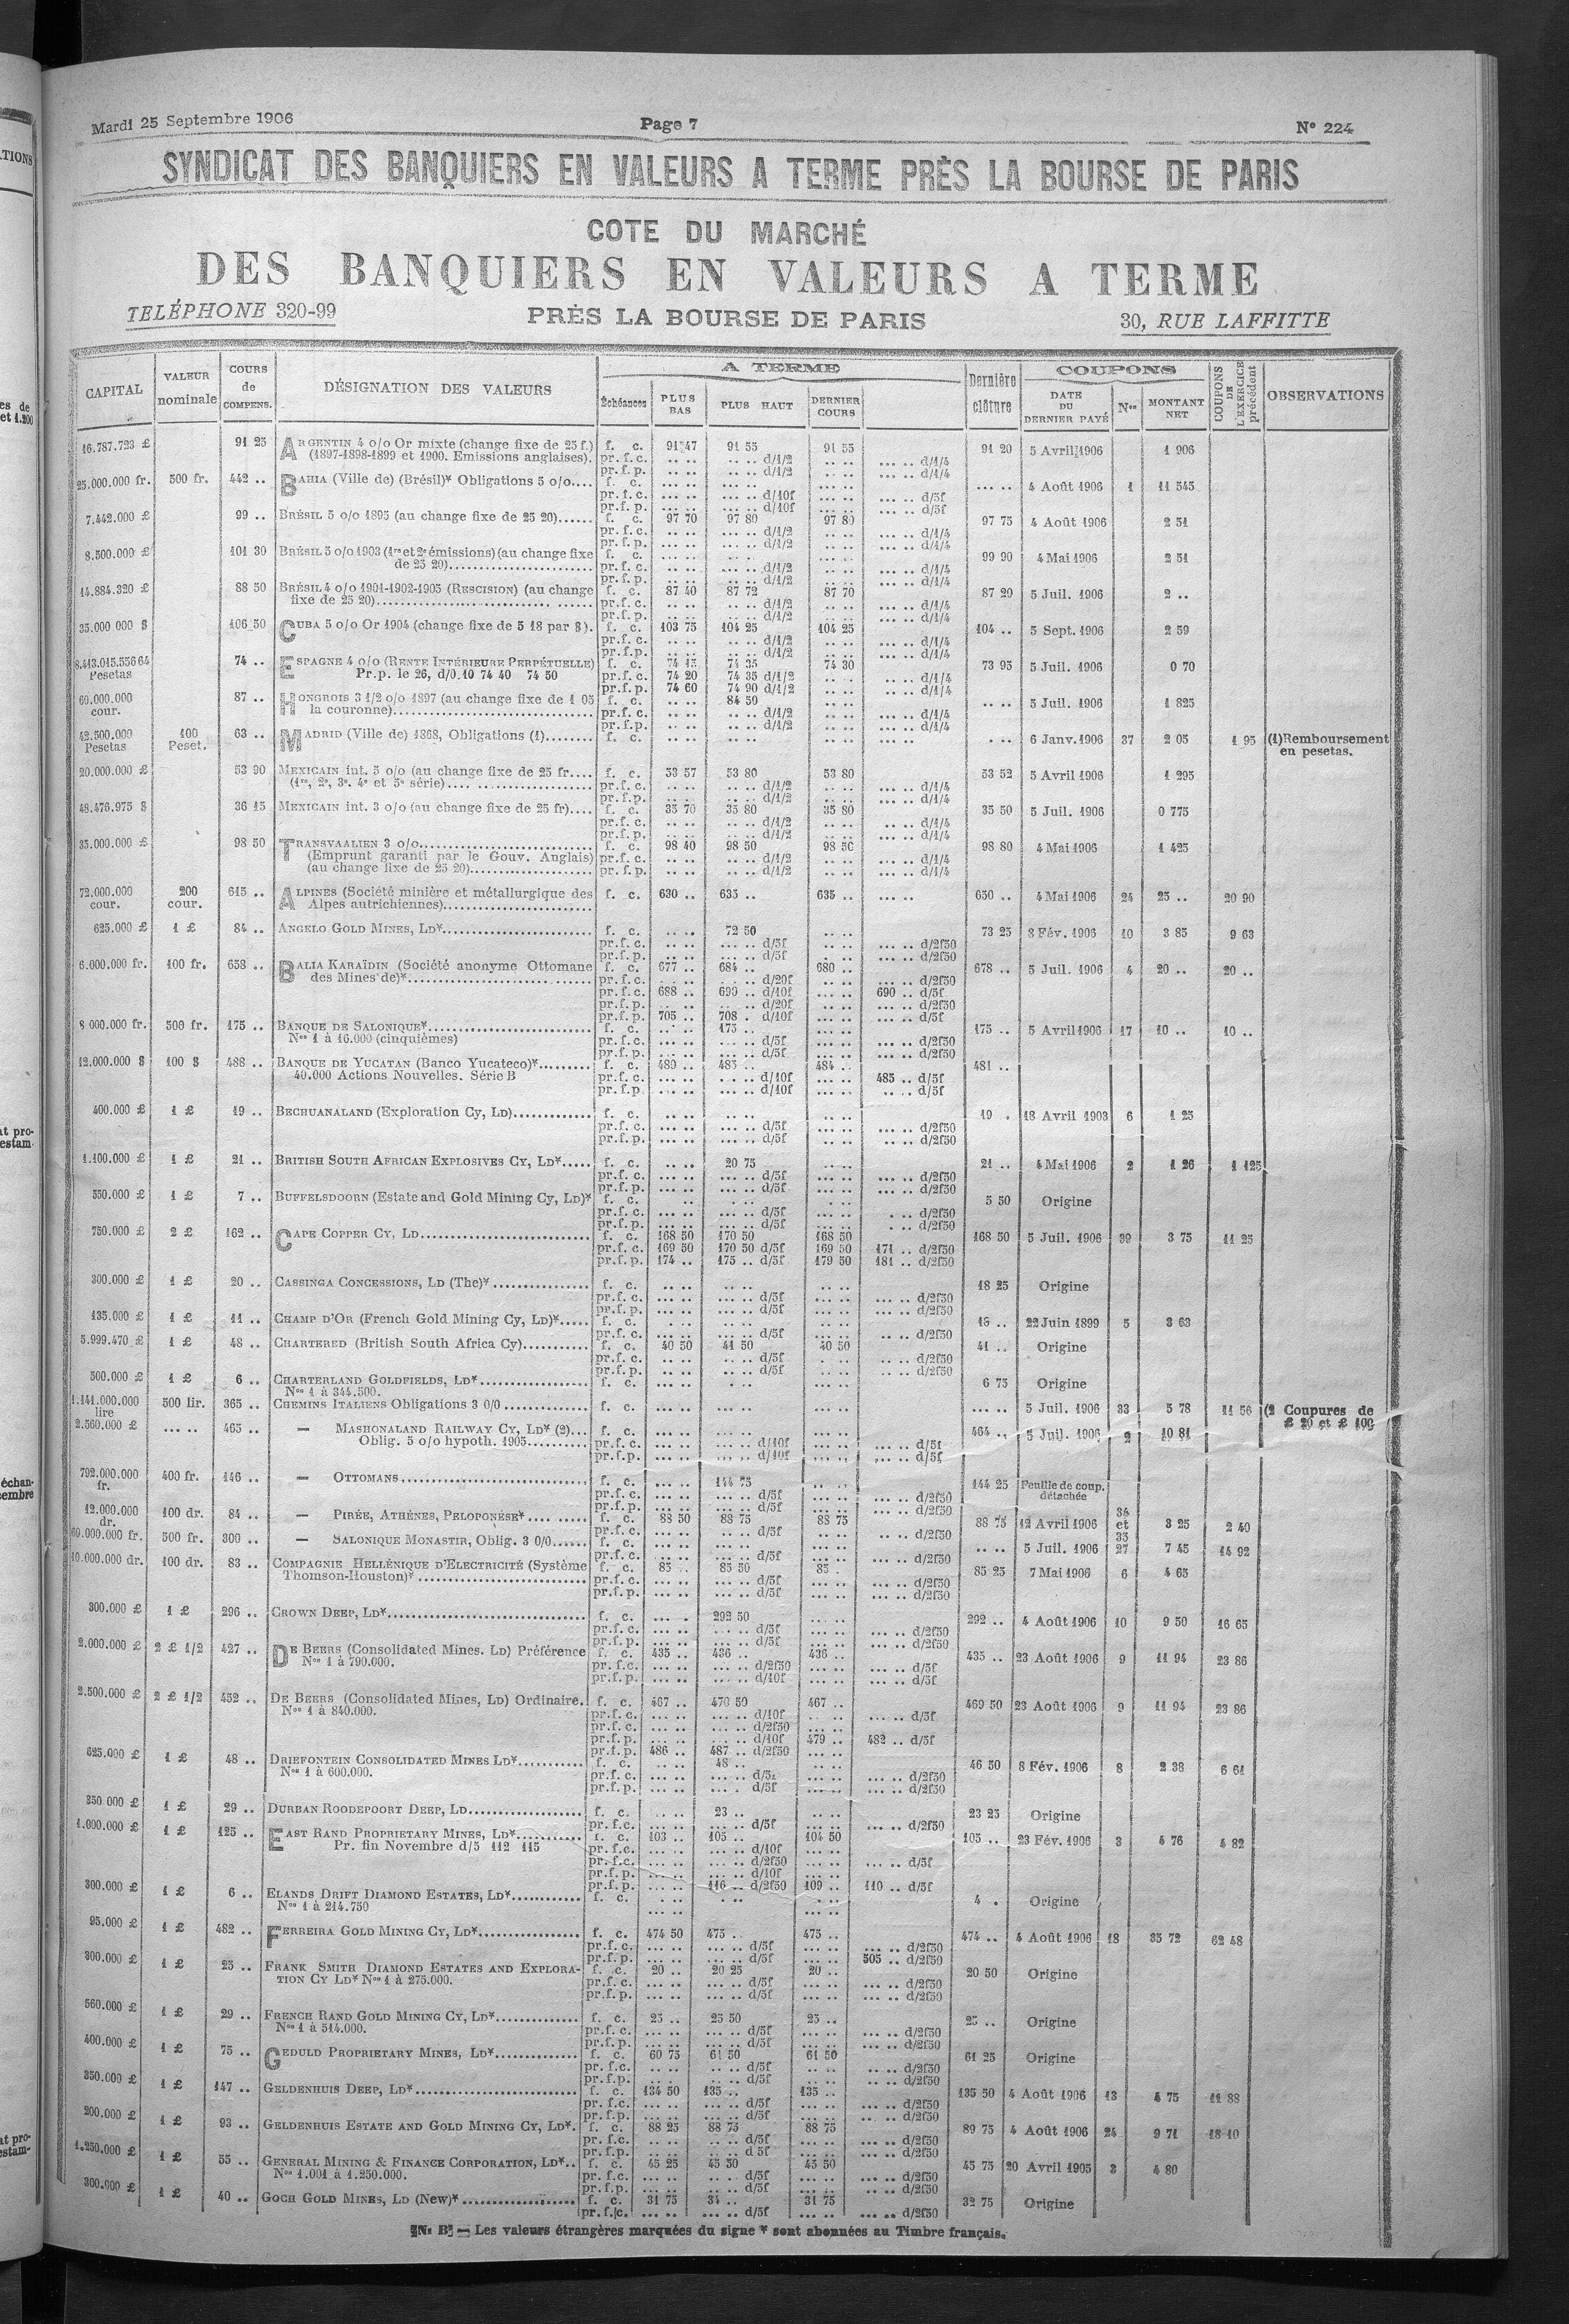 Mardi 25 Septembre 1906 Page 7 N° 224
SYNDICAT DES BANQUIERS EN VALEURS A TERME PRÈS LA BOURSE DE PARIS
COTE DU MARCHÉ
DES BANQUIERS EN VALEURS A TERME
TELÉPHONE 320-99 PRÈS LA BOURSE DE PARIS 30, RUE LAFFITTE
CAPITAL VALEUR nominale COURS de COMPENS. DÉSIGNATION DES VALEURS A TERME Échéances PLUS BAS PLUS HAUT DERNIER COURS Dernière clôture COUPONS DATE DU DERNIER PAYÉ Nos MONTANT NET COUPONS DE L'EXERCICE précédent OBSERVATIONS
16.787.723 £ 91 25 ARGENTIN 4 o/o Or mixte (change fixe de 25 f.) f. c. 91 47 91 55 91 55 91 20 5 Avril 1906 1 906
(1897-1898-1899 et 1900. Emissions anglaises). pr. f. c. .. .. .. .. d/1/2 .. .. ... .. d/1/4
pr. f. p. .. .. .. .. d/1/2 .. .. ... .. d/1/4
25.000.000 fr. 500 fr. 442 .. BAHIA (Ville de) (Brésil)* Obligations 5 o/o.... f. c. ... .. ... .. 4 Août 1906 1 11 545
pr. f. c. ... .. ... .. d/10f ... .. d/5f
pr. f. p. ... .. ... .. d/10f ... .. d/5f
7.442.000 £ 99 .. BRÉSIL 5 o/o 1895 (au change fixe de 25 20)...... f. c. 97 70 97 80 97 80 97 75 4 Août 1906 2 51
pr. f. c. .. .. ... .. d/1/2 .. .. ... .. d/1/4
pr. f. p. .. .. ... .. d/1/2 .. .. ... .. d/1/4
8.500.000 £ 101 30 BRÉSIL 5 o/o 1903 (1re et 2e émissions) (au change fixe f. c. 99 90 4 Mai 1906 2 51
de 25 20)........................ pr. f. c. .. .. ... .. d/1/2 .. .. ... .. d/1/4
pr. f. p. .. .. ... .. d/1/2 .. .. ... .. d/1/4
14.884.320 £ 88 50 BRÉSIL 4 o/o 1901-1902-1905 (RESCISION) (au change f. c. 87 40 87 72 87 70 87 20 5 Juil. 1906 2 ..
fixe de 25 20).................................. pr. f. c. .. .. .. .. d/1/2 .. .. ... .. d/1/4
pr. f. p. .. .. .. .. d/1/2 .. .. ... .. d/1/4
35.000 000 $ 106 50 CUBA 5 o/o Or 1904 (change fixe de 5 18 par $). f. c. 103 75 104 25 104 25 104 .. 5 Sept. 1906 2 59
pr. f. c. .. .. .. .. d/1/2 .. .. ... .. d/1/4
pr. f. p. .. .. .. .. d/1/2
8.413.015.556 64 74 .. ESPAGNE 4 o/o (RENTE INTÉRIEURE PERPÉTUELLE) f. c. 74 15 74 35 74 30 73 95 5 Juil. 1906 0 70
Pesetas Pr.p. le 26, d/0.10 74 40 74 50 pr. f. c. 74 20 74 35 d/1/2 .. .. ... .. d/1/4
pr. f. p. 74 60 74 90 d/1/2 .. .. ... .. d/1/4
60.000.000 87 .. HONGROIS 3 1/2 o/o 1897 (au change fixe de 1 05 f. c. .. .. 84 50 .. .. 5 Juil. 1906 1 825
cour. la couronne)................................ pr. f. c. .. .. .. .. d/1/2 .. .. ... .. d/1/4
pr. f. p. .. .. .. .. d/1/2 .. .. ... .. d/1/4
42.500.000 100 63 .. MADRID (Ville de) 1868, Obligations (1)........ f. c. .. .. .. .. .. .. 6 Janv. 1906 37 2 05 1 95 (1) Remboursement
Pesetas Peset. en pesetas.
20.000.000 £ 53 90 MEXICAIN int. 5 o/o (au change fixe de 25 fr.... f. c. 53 57 53 80 53 80 53 52 5 Avril 1906 1 295
(1re, 2e, 3e. 4e et 5e série).................... pr. f. c. .. .. .. .. d/1/2 .. .. ... .. d/1/4
pr. f. p. .. .. .. .. d/1/2 .. .. ... .. d/1/4
48.476.975 $ 36 15 MEXICAIN int. 3 o/o (au change fixe de 25 fr).... f. c. 35 70 35 80 35 80 35 50 5 Juil. 1906 0 775
pr. f. c. .. .. .. .. d/1/2 .. .. ... .. d/1/4
pr. f. p. .. .. .. .. d/1/2 .. .. ... .. d/1/4
35.000.000 £ 98 50 TRANSVAALIEN 3 o/o........................ f. c. 98 40 98 50 98 50 98 80 4 Mai 1906 1 425
(Emprunt garanti par le Gouv. Anglais) pr. f. c. .. .. .. .. d/1/2 .. .. ... .. d/1/4
(au change fixe de 25 20).................... pr. f. p. .. .. .. .. d/1/2 .. .. ... .. d/1/4
72.000.000 200 615 .. ALPINES (Société minière et métallurgique des f. c. 630 .. 635 .. 635 .. ... .. 630 .. 4 Mai 1906 24 25 .. 20 90
cour. cour. Alpes autrichiennes)........................
625.000 £ 1 £ 84 .. ANGELO GOLD MINES, LD*........................ f. c. .. .. 72 50 .. .. 73 25 8 Fév. 1906 10 3 85 9 63
pr. f. c. ... .. ... .. d/5f ... .. d/2f50
pr. f. p. ... .. ... .. d/5f ... .. d/2f50
6.000.000 fr. 100 fr. 658 .. BALIA KARAÏDIN (Société anonyme Ottomane f. c. 677 .. 684 .. 680 .. 678 .. 5 Juil. 1906 4 20 .. 20 ..
des Mines de)*........................ pr. f. c. .. .. d/20f ... .. d/2f50
pr. f. c. 688 .. 690 .. d/10f ... .. 690 .. d/5f
pr. f. p. .. .. d/20f ... .. d/2f50
pr. f. p. 705 .. 708 . d/10f ... .. d/5f
8 000.000 fr. 500 fr. 175 .. BANQUE DE SALONIQUE*........................ f. c. 175 .. 175 .. 5 Avril 1906 17 10 .. 10 ..
Nos 1 à 16.000 (cinquièmes) pr. f. c. ... .. ... .. d/5f ... .. d/2f50
pr. f. p. ... .. ... .. d/5f ... .. d/2f50
12.000.000 $ 100 $ 488 .. BANQUE DE YUCATAN (Banco Yucateco)*........ f. c. 480 .. 485 .. 484 .. 481 ..
40.000 Actions Nouvelles. Série B pr. f. c. ... .. d/10f ... .. 485 .. d/5f
pr. f. p. ... .. d/10f ... .. d/5f
400.000 £ 1 £ 19 .. BECHUANALAND (Exploration Cy, LD)............ f. c. .. .. .. .. 19 . 18 Avril 1903 6 1 25
pr. f. c. .. .. ... .. d/5f .. .. ... .. d/2f50
pr. f. p. .. .. ... .. d/5f .. .. ... .. d/2f50
1.100.000 £ 1 £ 21 .. BRITISH SOUTH AFRICAN EXPLOSIVES CY, LD*..... f. c. .. .. 20 75 21 .. 4 Mai 1906 2 1 26 1 125
pr. f. c. ... .. ... .. d/5f ... .. d/2f50
pr. f. p. ... .. ... .. d/5f ... .. d/2f50
550.000 £ 1 £ 7 .. BUFFELSDOORN (Estate and Gold Mining Cy, LD)* f. c. 5 50 Origine
pr. f. c. ... .. ... .. d/5f . .. d/2f50
pr. f. p. ... .. ... .. d/5f . .. d/2f50
750.000 £ 2 £ 162 .. CAPE COPPER CY, LD........................ f. c. 168 50 170 50 168 50 168 50 5 Juil. 1906 39 3 75 11 25
pr. f. c. 169 50 170 50 d/5f 169 50 171 .. d/2f50
pr. f. p. 174 .. 175 .. d/5f 179 50 181 .. d/2f50
300.000 £ 1 £ 20 .. CASSINGA CONCESSIONS, LD (The)*............... f. c. .. .. .. .. 18 25 Origine
pr. f. c. ... .. ... .. d/5f ... .. d/2f50
pr. f. p. ... .. ... .. d/5f ... .. d/2f50
135.000 £ 1 £ 11 .. CHAMP D'OR (French Gold Mining Cy, LD)*..... f. c. 15 .. 22 Juin 1899 5 3 63
pr. f. c. ... .. ... .. d/5f .. .. d/2f50
5.999.470 £ 1 £ 48 .. CHARTERED (British South Africa Cy).......... f. c. 40 50 41 50 40 50 41 .. Origine
pr. f. c. .. .. ... .. d/5f .. .. d/2f50
pr. f. p. .. .. ... .. d/5f .. .. d/2f50
500.000 £ 1 £ 6 .. CHARTERLAND GOLDFIELDS, LD*................. f. c. 6 75 Origine
Nos 1 à 344.500.
1.141.000.000 500 lir. 365 .. CHEMINS ITALIENS Obligations 3 0/0............ f. c. ... .. ... .. ... .. 5 Juil. 1906 33 5 78 11 56 (2 Coupures de
lire £ 20 et £ 100
2.560.000 £ ... .. 465 .. — MASHONALAND RAILWAY CY, LD* (2)... f. c. ... .. ... .. 464 .. 5 Juil. 1906 2 10 81
Oblig. 5 o/o hypoth. 1905.......... pr. f. c. ... .. ... .. d/10f ... .. d/5f
pr. f. p. ... .. ... .. d/10f ... .. d/5f
792.000.000 400 fr. 146 .. — OTTOMANS........................ f. c. ... .. 144 75 144 25 Feuille de coup.
fr. pr. f. c. ... .. ... .. d/5f ... .. d/2f50 détachée
pr. f. p. ... .. ... .. d/5f ... .. d/2f50
12.000.000 100 dr. 84 .. — PIRÉE, ATHÈNES, PELOPONÈSE*.......... f. c. 88 50 88 75 88 75 88 75 12 Avril 1906 34 et 35 3 25 2 40
dr. pr. f. c. ... .. ... .. d/5f .. .. d/2f50
60.000.000 fr. 500 fr. 300 .. — SALONIQUE MONASTIR, Oblig. 3 0/0...... f. c. .. .. 5 Juil. 1906 27 7 45 14 92
pr. f. c. ... .. ... .. d/5f ... .. d/2f50
10.000.000 dr. 100 dr. 83 .. COMPAGNIE HELLÉNIQUE D'ELECTRICITÉ (Système f. c. 85 .. 85 50 85 . 85 25 7 Mai 1906 6 4 65
Thomson-Houston)*........................ pr. f. c. ... .. ... .. d/5f ... .. d/2f50
pr. f. p. ... .. ... .. d/5f ... .. d/2f50
300.000 £ 1 £ 296 .. CROWN DEEP, LD*........................ f. c. ... . 292 50 292 .. 4 Août 1906 10 9 50 16 65
pr. f. c. ... .. ... .. d/5f ... .. d/2f50
pr. f. p. ... .. ... .. d/5f ... .. d/2f50
2.000.000 £ 2 £ 1/2 427 .. DE BEERS (Consolidated Mines. LD) Préférence f. c. 435 .. 436 .. 436 .. 435 .. 23 Août 1906 9 11 94 23 86
Nos 1 à 790.000. pr. f. c. ... .. ... .. d/2f50 ... .. d/5f
pr. f. p. ... .. ... .. d/10f ... .. d/5f
2.500.000 £ 2 £ 1/2 452 .. DE BEERS (Consolidated Mines, LD) Ordinaire. f. c. 467 .. 470 50 467 .. 469 50 23 Août 1906 9 11 94 23 86
Nos 1 à 840.000. pr. f. c. ... .. ... .. d/10f ... .. d/5f
pr. f. c. ... .. ... .. d/2f50 ... ..
pr. f. p. ... .. ... .. d/10f 479 .. 482 .. d/5f
pr. f. p. 486 .. 487 .. d/2f50 ... ..
625.000 £ 1 £ 48 .. DRIEFONTEIN CONSOLIDATED MINES LD*........... f. c. 48 .. 46 50 8 Fév. 1906 8 2 38 6 61
Nos 1 à 600.000. pr. f. c. ... .. ... .. ... .. d/2f50
pr. f. p. ... .. ... .. d/5f ... .. d/2f50
350 000 £ 1 £ 29 .. DURBAN ROODEPOORT DEEP, LD................... f. c. 23 .. 23 25 Origine
pr. f. c. ... .. ... .. d/5f ... .. d/2f50
1.000.000 £ 1 £ 125 .. EAST RAND PROPRIETARY MINES, LD*............ f. c. 103 .. 105 .. 104 50 105 .. 23 Fév. 1906 3 4 76 4 82
Pr. fin Novembre d/5 112 115 pr. f. c. ... .. ... .. d/10f ... ..
pr. f. c. ... .. ... .. d/2f50 ... .. ... .. d/5f
pr. f. p. ... .. ... .. d/10f ... ..
pr. f. p. ... .. 116 .. d/2f50 109 .. 110 .. d/5f
300.000 £ 1 £ 6 .. ELANDS DRIFT DIAMOND ESTATES, LD*............ f. c. 4 . Origine
Nos 1 à 214.750
95.000 £ 1 £ 482 .. FERREIRA GOLD MINING CY, LD*................ f. c. 474 50 475 .. 475 .. 474 .. 4 Août 1906 18 35 72 62 48
pr. f. c. ... .. ... .. d/5f ... .. d/2f50
pr. f. p. ... .. ... .. d/5f 505 .. d/2f50
300.000 £ 1 £ 25 .. FRANK SMITH DIAMOND ESTATES AND EXPLORA- f. c. 20 .. 20 25 20 .. 20 50 Origine
TION CY LD* Nos 1 à 275.000. pr. f. c. ... .. ... .. d/5f ... .. d/2f50
pr. f. p. ... .. ... .. d/5f ... .. d/2f50
560.000 £ 1 £ 29 .. FRENCH RAND GOLD MINING CY, LD*............. f. c. 25 .. 25 50 25 .. 25 .. Origine
Nos 1 à 514.000. pr. f. c. ... .. ... .. d/5f ... .. d/2f50
pr. f. p. ... .. ... .. d/5f ... .. d/2f50
400.000 £ 1 £ 75 .. GEDULD PROPRIETARY MINES, LD*............... f. c. 60 75 61 50 61 50 61 25 Origine
pr. f.c. .. .. ... .. d/5f .. .. d/2f50
pr. f. p. .. .. ... .. d/5f .. .. d/2f50
350.000 £ 1 £ 147 .. GELDENHUIS DEEP, LD*........................ f. c. 134 50 135 .. 135 .. 135 50 4 Août 1906 13 4 75 11 88
pr. f.c. ... .. ... .. d/5f ... .. d/2f50
pr. f. p. ... .. ... .. d/5f ... .. d/2f50
200.000 £ 1 £ 93 .. GELDENHUIS ESTATE AND GOLD MINING CY, LD*. f. c. 88 25 88 75 88 75 89 75 4 Août 1906 24 9 71 18 10
pr. f.c. .. .. ... .. d/5f ... .. d/2f50
pr. f. p. .. .. ... .. d 5f ... .. d/2f50
1.250.000 £ 1 £ 55 .. GENERAL MINING & FINANCE CORPORATION, LD*.. f. c. 45 25 45 50 45 50 45 75 20 Avril 1905 3 4 80
Nos 1.001 à 1.250.000. pr. f.c. ... .. ... .. d/5f ... .. d/2f50
pr. f. p. ... .. ... .. d/5f ... .. d/2f50
300.000 £ 1 £ 40 .. GOCH GOLD MINES, LD (New)*................... f. c. 31 75 34 .. 31 75 32 75 Origine
pr. f. c. ... .. ... .. d/5f ... .. d/2f50
N. B. — Les valeurs étrangères marquées du signe * sont abonnées au Timbre français.